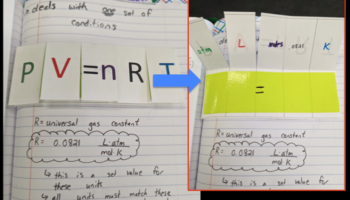 deals with one set of
conditions
P V = n R T
R = universal gas constant
R = 0.0821 L·atm
mol·K
↳ this is a set value for
these units
↳ all units must match these
atm L moles 0.0821 K
=
R = universal gas constant
R = 0.0821 L·atm
mol·K
↳ this is a set value for
these units